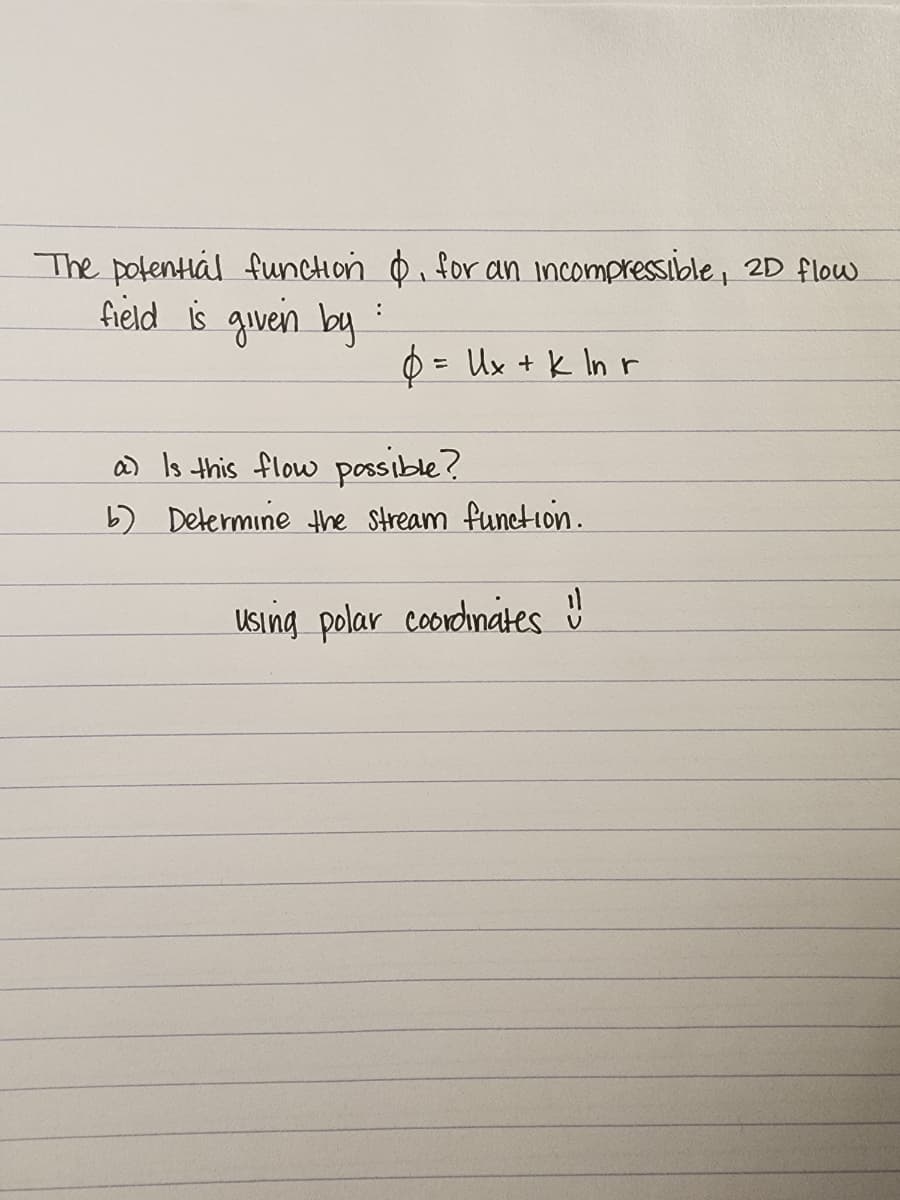 The potential function ϕ, for an incompressible, 2D flow
field is given by :
ϕ = Ux + k ln r
a) Is this flow possible?
b) Determine the stream function.
using polar coordinates !!